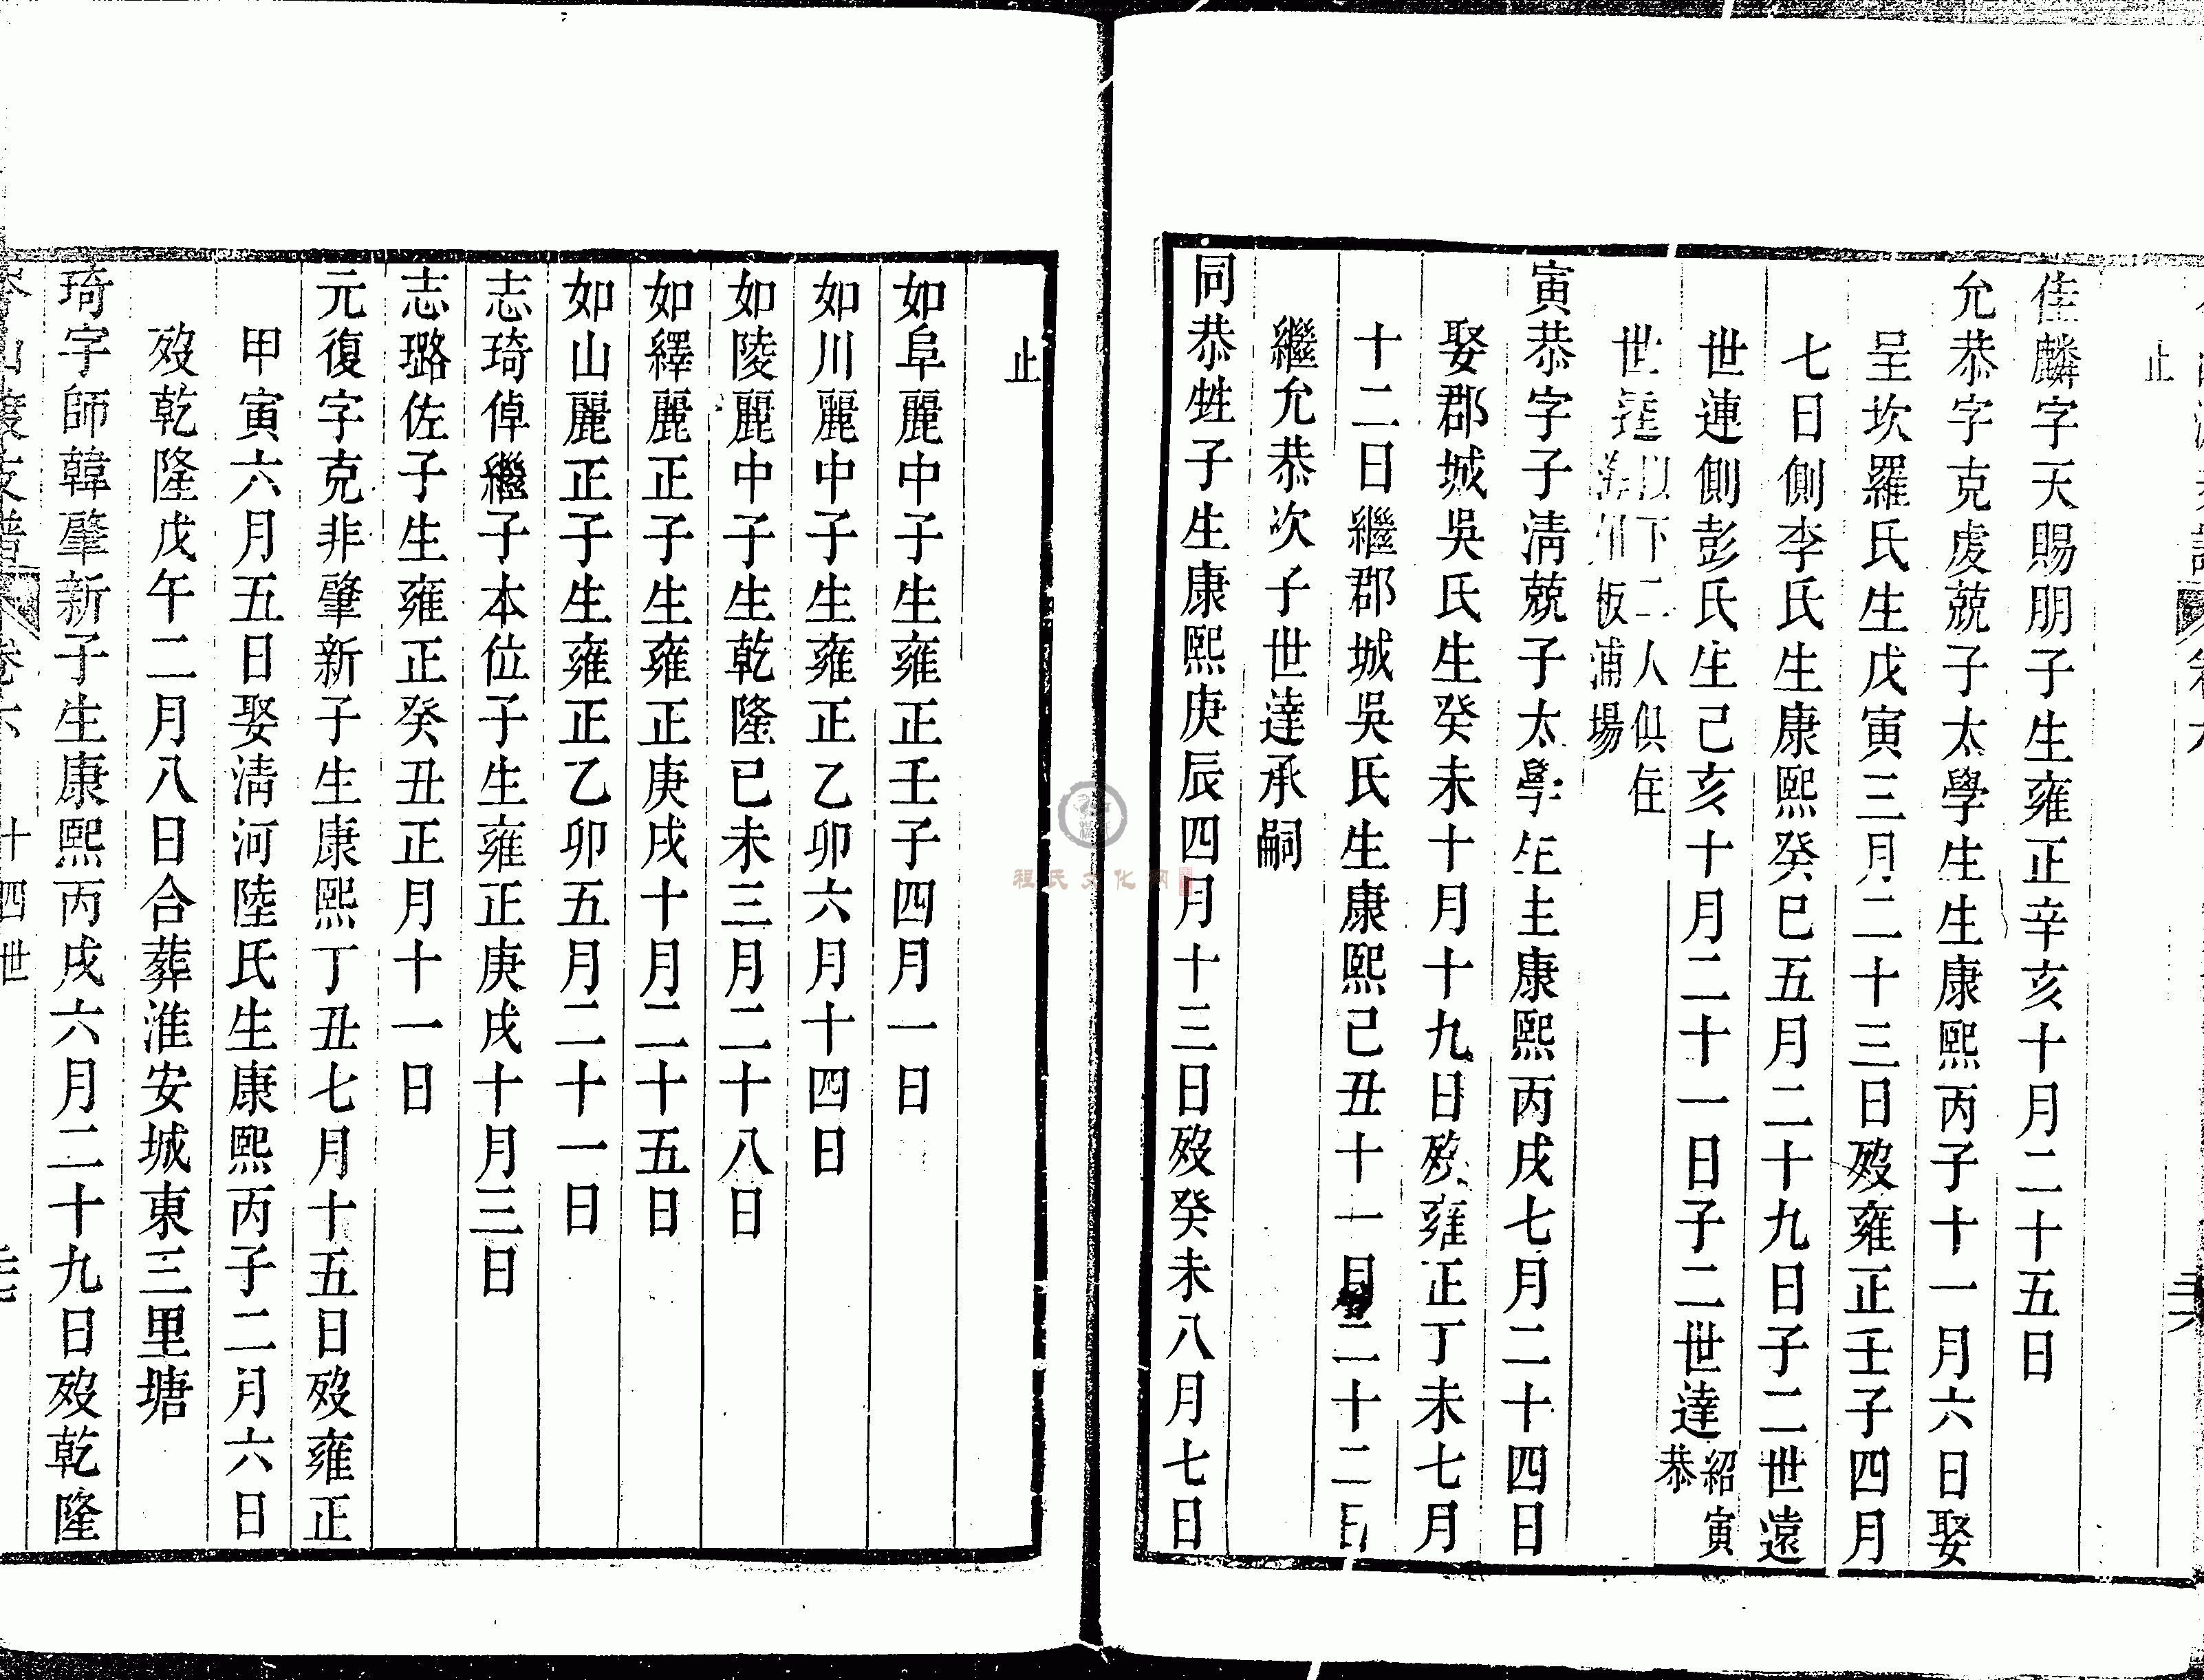 止
佳麟字天賜朋子生雍正辛亥十月二十五日
允恭字克虔兢子太學生生康熙丙子十一月六日娶
呈坎羅氏生戊寅三月二十三日歿雍正壬子四月
七日側李氏生康熙癸巳五月二十九日子二世遠
世連側彭氏生己亥十月二十一日子二世達紹寅
恭
世
以下二人俱住
海州板浦場
寅恭字子淸兢子太學生生康熙丙戌七月二十四日
娶郡城吳氏生癸未十月十九日歿雍正丁未七月
十二日繼郡城吳氏生康熙己丑十一月二十二日
繼允恭次子世達承嗣
同恭甡子生康熙庚辰四月十三日歿癸未八月七日
止
如阜麗中子生雍正壬子四月一日
如川麗中子生雍正乙卯六月十四日
如陵麗中子生乾隆已未三月二十八日
如繹麗正子生雍正庚戌十月二十五日
如山麗正子生雍正乙卯五月二十一日
志琦倬繼子本位子生雍正庚戌十月三日
志璐佐子生雍正癸丑正月十一日
元復字克非肇新子生康熙丁丑七月十五日歿雍正
甲寅六月五日娶淸河陸氏生康熙丙子二月六日
歿乾隆戊午二月八日合葬淮安城東三里塘
琦字師韓肇新子生康熙丙戌六月二十九日歿乾隆
十四世